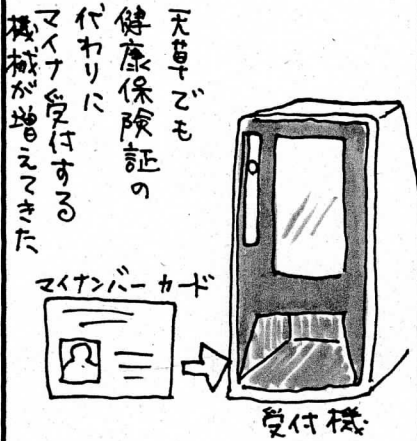 天草でも
健康保険証の
代わりに
マイナ受付する
機械が増えてきた
マイナンバーカード
受付機